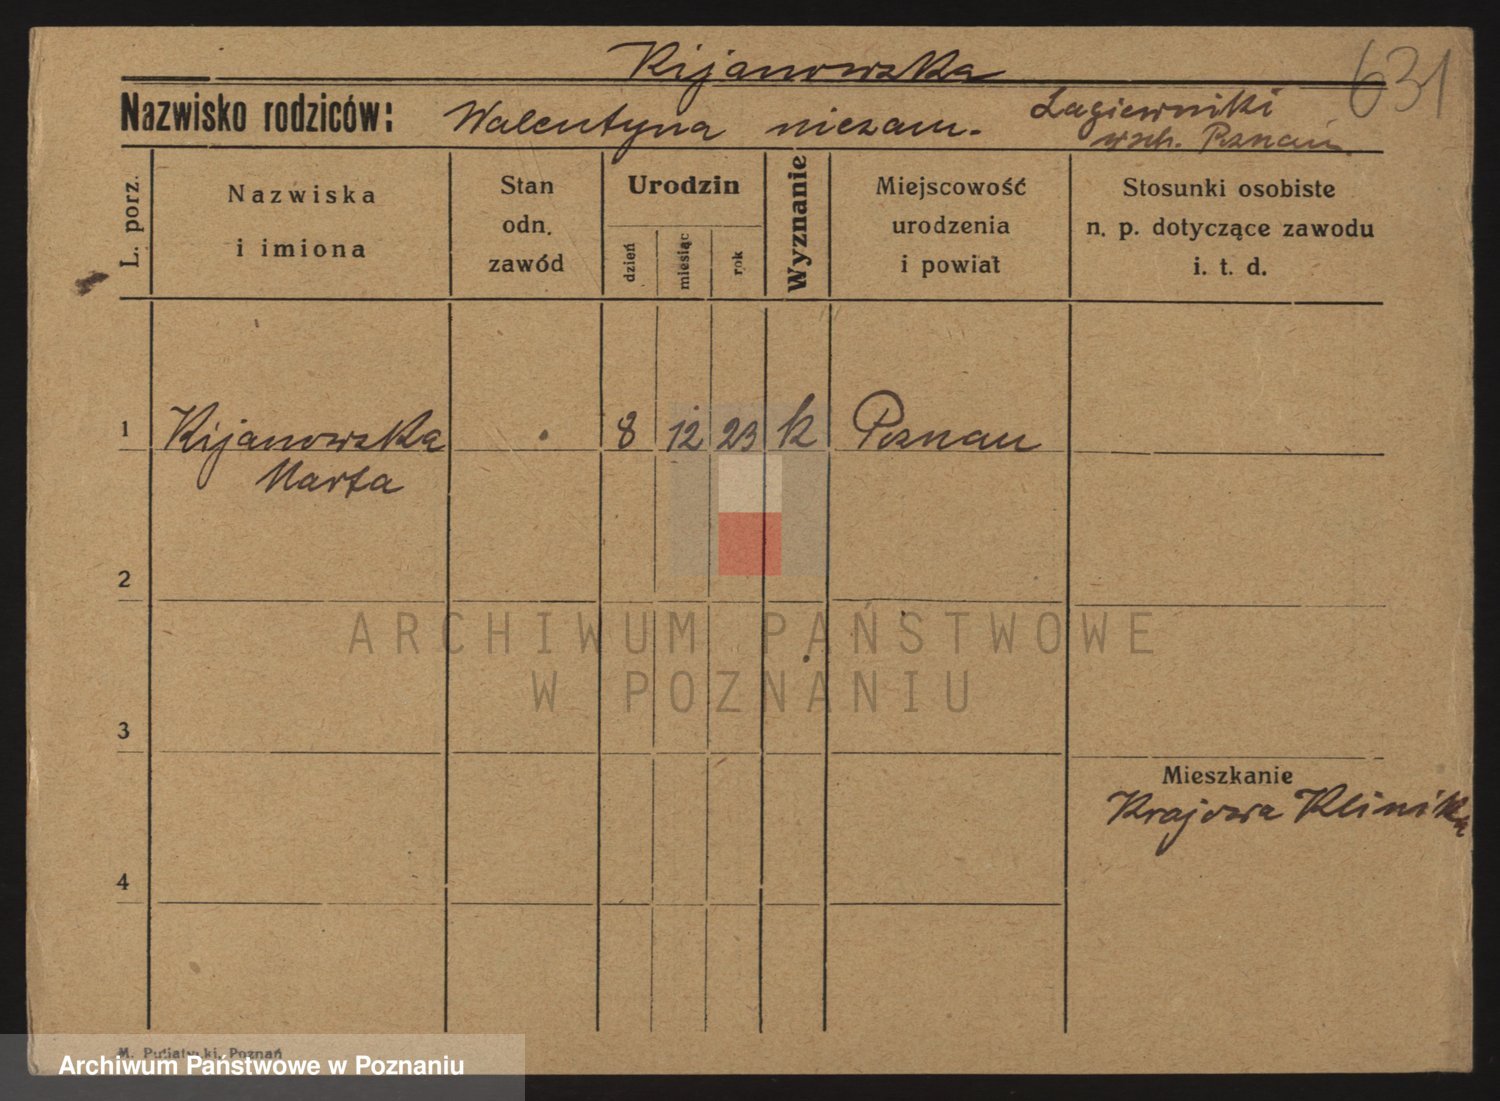 Kijanowska
631
Nazwisko rodziców: Walentyna niezam. Łagiewniki
wsch. Poznań
L. porz.
Nazwiska
i imiona
Stan
odn.
zawód
Urodzin
dzień
miesiąc
rok
Wyznanie
Miejscowość
urodzenia
i powiat
Stosunki osobiste
n. p. dotyczące zawodu
i. t. d.
1 Kijanowska 8 12 23 k Poznań
Marta
2
ARCHIWUM PAŃSTWOWE
W POZNANIU
3
Mieszkanie
Krajowa Klinika
4
M. Putiatycki, Poznań
Archiwum Państwowe w Poznaniu